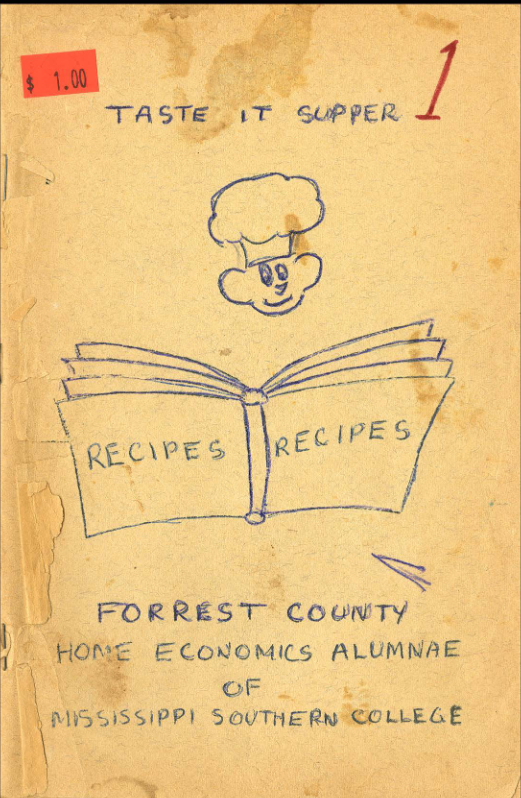 $ 1.00
1
TASTE IT SUPPER
RECIPES RECIPES
FORREST COUNTY
HOME ECONOMICS ALUMNAE
OF
MISSISSIPPI SOUTHERN COLLEGE